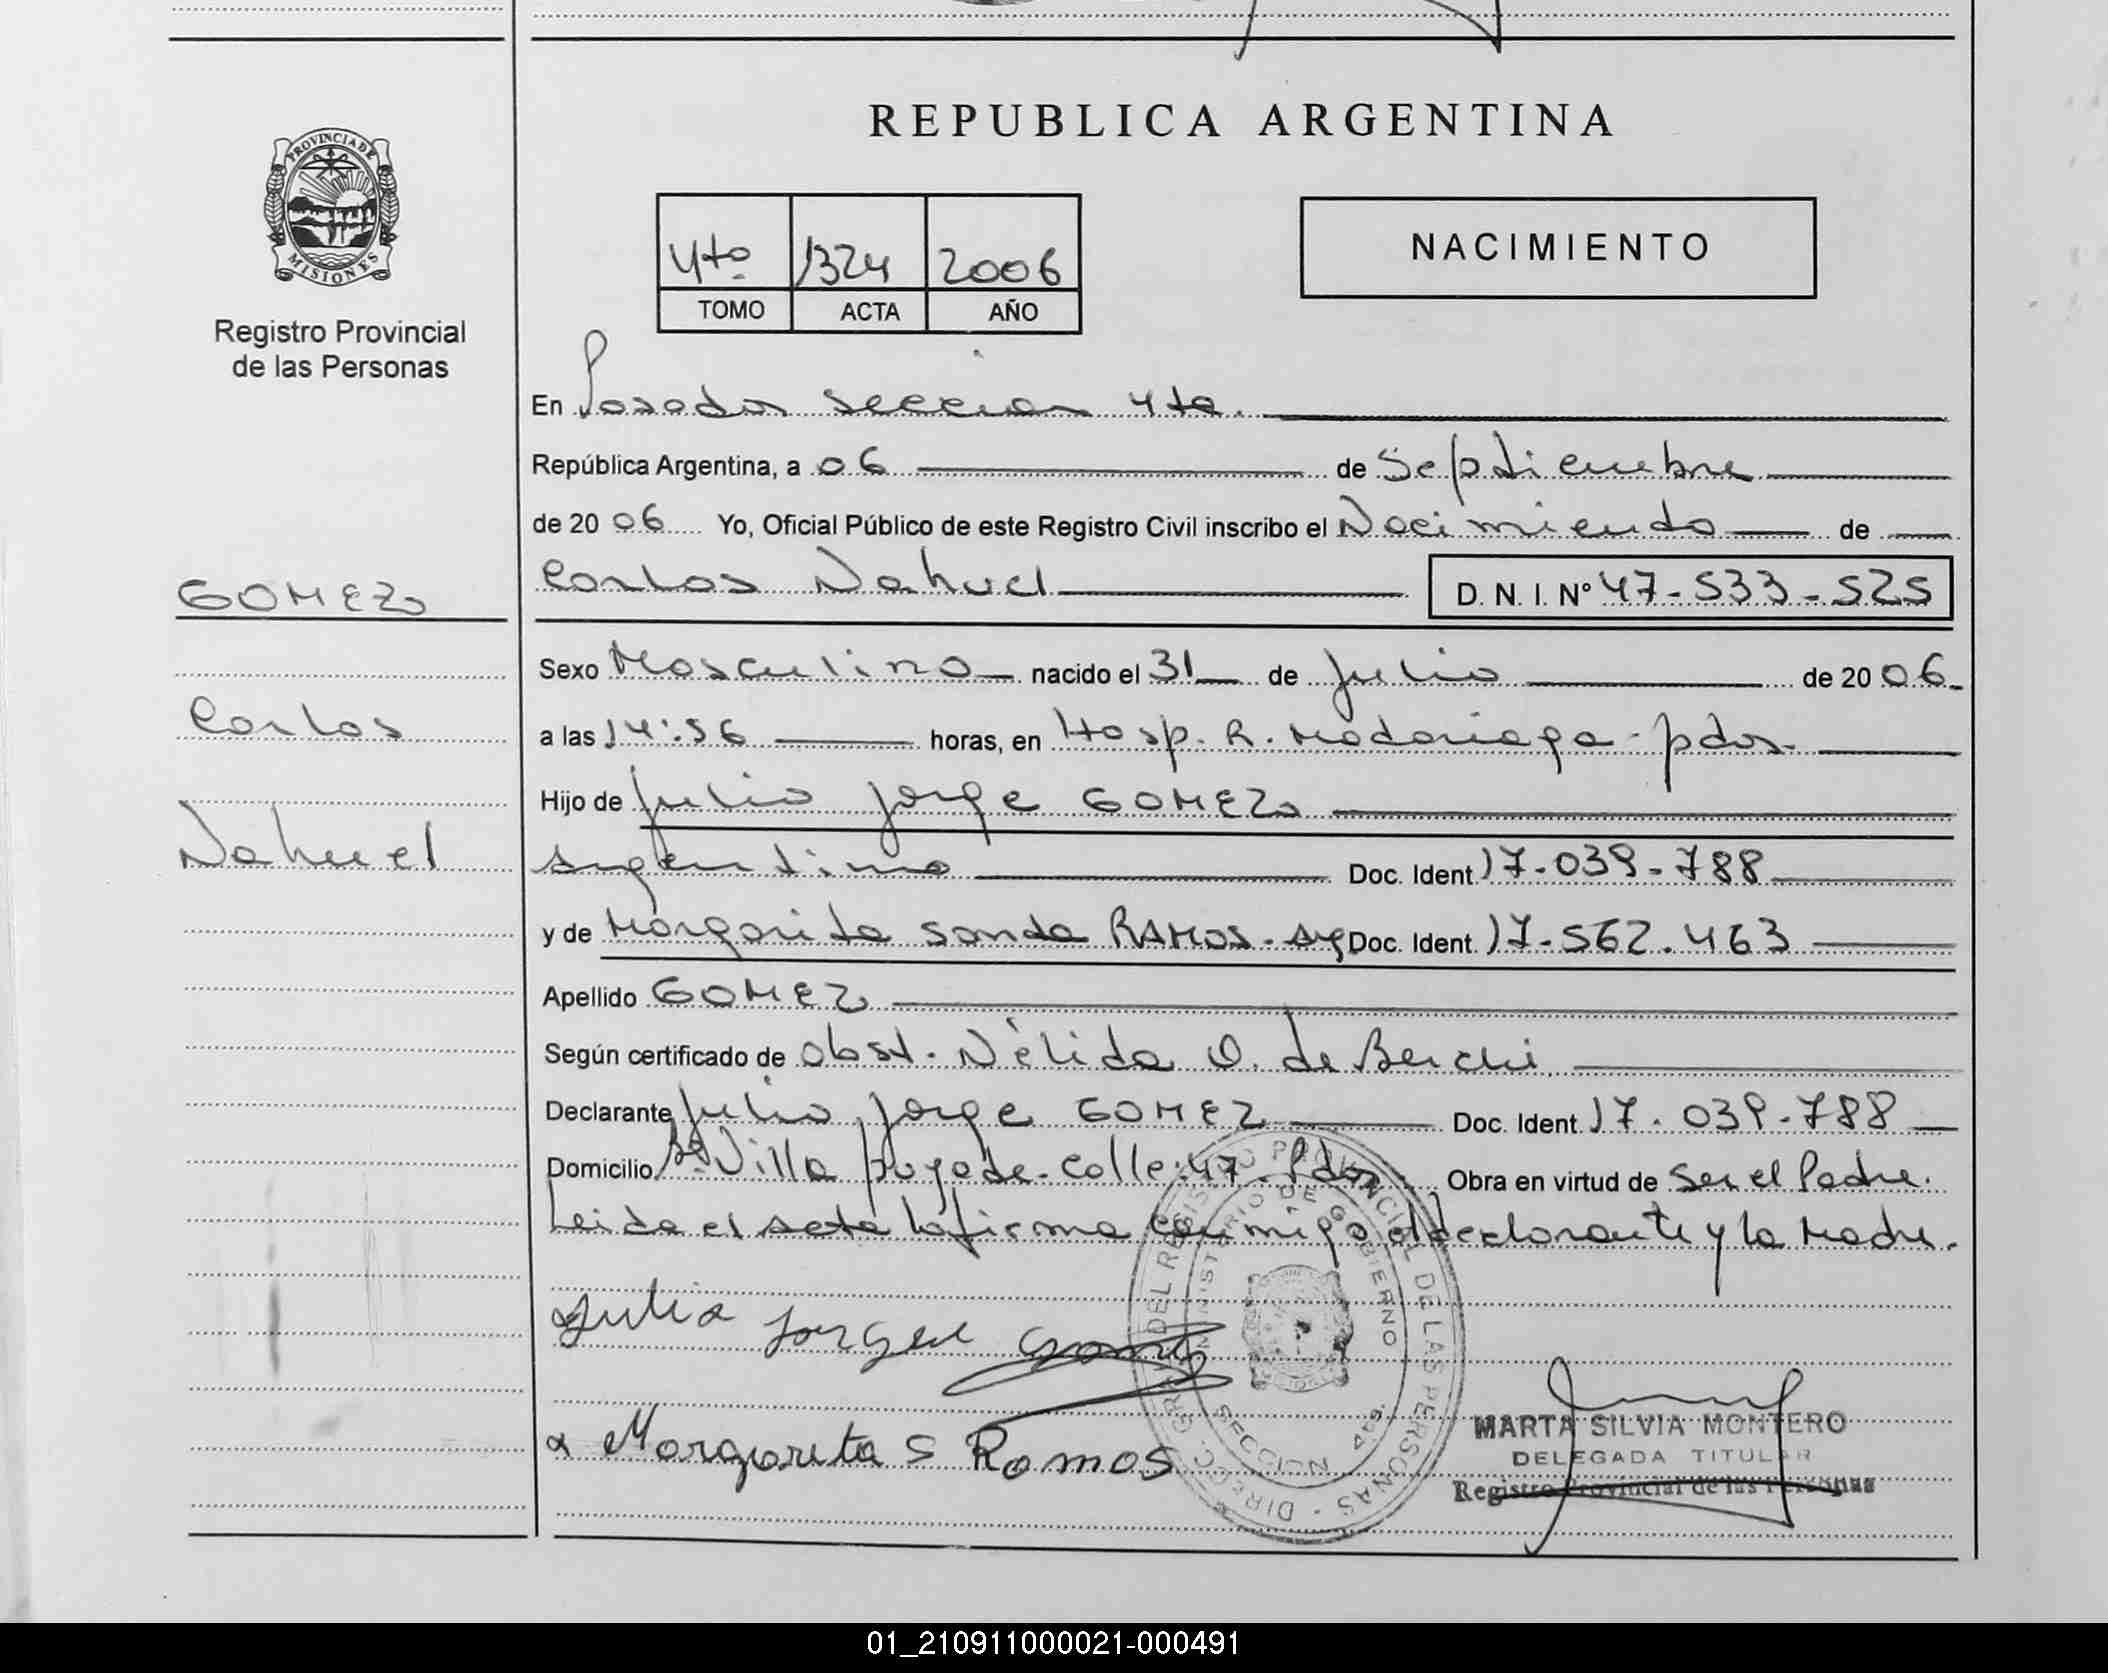 REPUBLICA ARGENTINA
PROVINCIA DE
MISIONES
Registro Provincial
de las Personas
4to 1324 2006
TOMO ACTA AÑO
NACIMIENTO
En Posadas seccion 4ta.
República Argentina, a 06 de Septiembre
de 2006 Yo, Oficial Público de este Registro Civil inscribo el Nacimiento de
Carlos Nahuel D. N. I. Nº 47-533-525
GOMEZ
Carlos
Nahuel
Sexo Masculino nacido el 31 de Julio de 2006
a las 14:56 horas, en Hosp. R. Madariaga - pdas.
Hijo de Julio Jorge GOMEZ
argentino Doc. Ident 17-039-788
y de Margarita Sonda RAMOS - arg Doc. Ident. 17-562.463
Apellido GOMEZ
Según certificado de obst. Nélida O. de Berchi
Declarante Julio Jorge GOMEZ Doc. Ident 17.039-788
Domicilio Bº Villa puyade - Calle: 47 - Pdas Obra en virtud de Ser el Padre.
Leida el acta la firma conmigo el declarante y la Madre.
Julio Jorge Gomez
Margarita S Ramos
DIRECC. GRAL. DEL REGISTRO PROVINCIAL DE LAS PERSONAS
MINISTERIO DE GOBIERNO
SECCION 4ta.
MARTA SILVIA MONTERO
DELEGADA TITULAR
Registro Provincial de las Personas
01_210911000021-000491